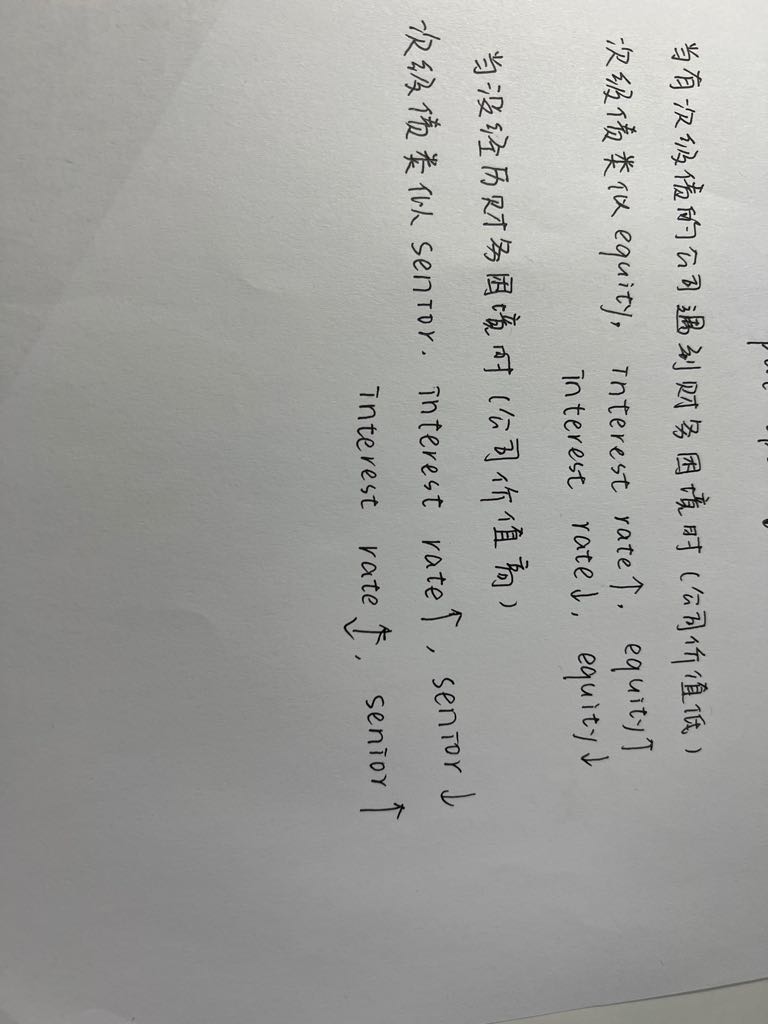 当有次级债的公司遇到财务困境时(公司价值低)
次级债类似equity, interest rate↑, equity↑
interest rate↓, equity↓
当没经历财务困境时(公司价值高)
次级债类似senior. interest rate↑, senior↓
interest rate↓, senior↑